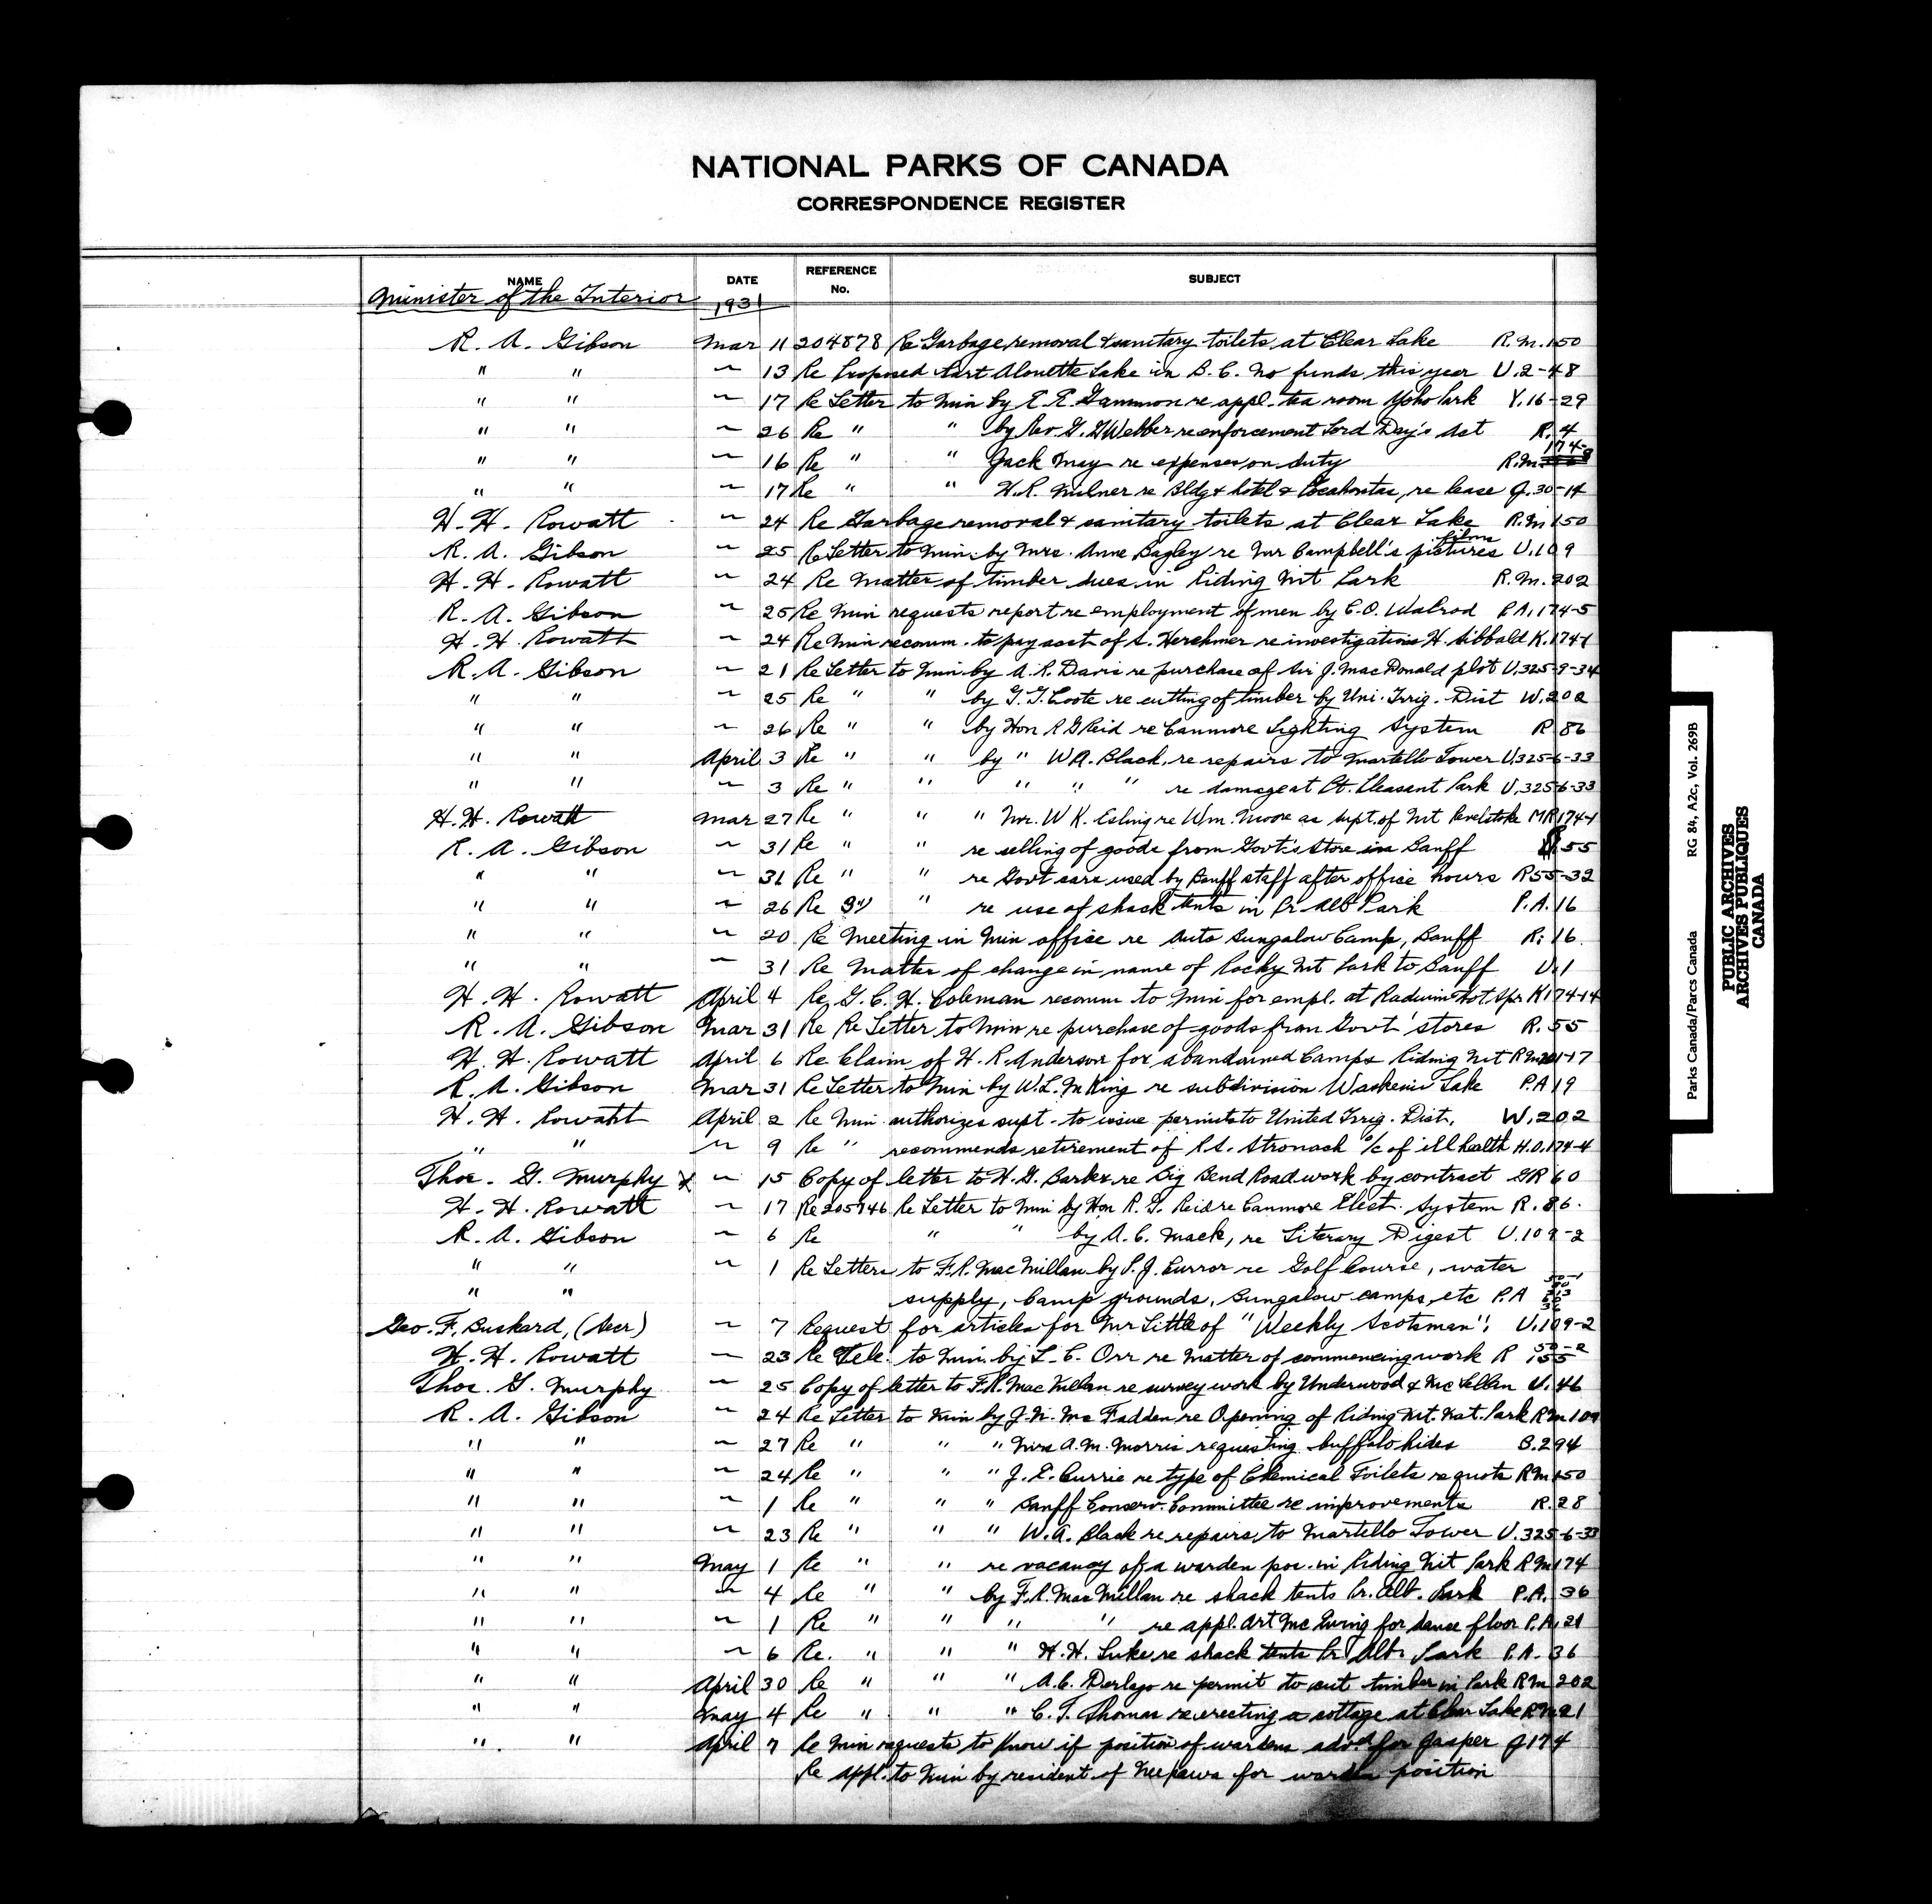 NATIONAL PARKS OF CANADA
CORRESPONDENCE REGISTER
NAME DATE REFERENCE No. SUBJECT
Minister of the Interior 1931
R. A. Gibson Mar 11 204878 Re Garbage removal & sanitary toilets at Clear Lake R.M. 150
" " " 13 Re Proposed Park Alouette Lake in B.C. No funds this year U.2-48
" " " 17 Re Letter to Min by E.R. Gammon re appl. tea room Yoho Park Y.16-29
" " " 26 Re " " by Rev. G. G Webber re enforcement Lord Day's Act R.4
" " " 16 Re " " Jack May re expenses on duty R.M. 174-8
" " " 17 Re " " H.R. Milner re Bldg & hotel & Pocahontas, re lease J.30-14
H. H. Rowatt " 24 Re Garbage removal & sanitary toilets at Clear Lake R.M 150
R. A. Gibson " 25 Re Letter to Min. by Mrs. Anne Bagley re Mr Campbell's pictures films U.109
H. H. Rowatt " 24 Re Matter of timber dues in Riding Mt Park R.M. 202
R. A. Gibson " 25 Re Min requests report re employment of men by C.O. Walrod P.A. 174-5
H. H. Rowatt " 24 Re Min recomm. to pay acct of S. Herchmer re investigations H. Sibbald K.174-1
R. A. Gibson " 21 Re Letter to Min by A.R. Davis re purchase of Sir J. MacDonald plot U.325-9-34
" " " 25 Re " " by G.G. Coote re cutting of timber by Uni. Irrig. Dist W.202
" " " 26 Re " " by Hon R G Reid re Canmore Lighting System R 86
" " April 3 Re " " by " W A. Black, re repairs to Martello Tower U.325-6-33
" " " 3 Re " " " " " re damage at Pt. Pleasant Park U.325-6-33
H. H. Rowatt Mar 27 Re " " " Mr. W K. Esling re Wm. Moore as supt. of Mt Revelstoke MR 174-1
R. A. Gibson " 31 Re " " re selling of goods from Govt's Store in Banff R.55
" " " 31 Re " " re Govt cars used by Banff staff after office hours R55-32
" " " 26 Re " " re use of shack tents in Pr Alb Park P.A. 16
" " " 20 Re Meeting in Min office re Auto Bungalow Camp, Banff R. 16
" " " 31 Re Matter of change in name of Rocky Mt Park to Banff U.1
H. H. Rowatt April 4 Re G. C. H. Coleman recomm to Min for empl. at Radium Hot Spr K174-14
R. A. Gibson Mar 31 Re Re Letter to Min re purchase of goods from Govt stores R. 55
H. H. Rowatt April 6 Re Claim of H. R. Anderson for abandoned Camps Riding Mt R M201-17
R. A. Gibson Mar 31 Re Letter to Min by W.L. M King re subdivision Waskesiu Lake P.A 19
H. H. Rowatt April 2 Re Min authorizes supt. to issue permits to United Irrig. Dist. W.202
" " " 9 Re " recommends retirement of R.S. Stronach a/c of ill health H.O.174-4
Thos. G. Murphy x " 15 Copy of letter to H.G. Barber re Big Bend Road work by contract GR 60
H. H. Rowatt " 17 Re 205746 Re Letter to Min by Hon R. G. Reid re Canmore Elect. System R. 86.
R. A. Gibson " 6 Re " " by A. C. Mack, re Literary Digest U.109-2
" " " 1 Re Letters to F.R. MacMillan by P. J. Curror re Golf Course, water
" " supply, Camp grounds, Bungalow camps, etc P.A
Geo. F. Buskard, (Secr) " 7 Request for articles for Mr Little of "Weekly Scotsman". U.109-2
H. H. Rowatt " 23 Re Tele. to Min. by L. C. Orr re Matter of commencing work R
Thos. G. Murphy " 25 Copy of letter to F.R. MacMillan re survey work by Underwood & McLellan U.46
R. A. Gibson " 24 Re Letter to Min by J. N. McFadden re Opening of Riding Mt. Nat. Park RM 109
" " " 27 Re " " " Mrs A.M. Morris requesting buffalo hides B.294
" " " 24 Re " " " J. E. Currie re type of Chemical Toilets re quota RM 150
" " " 1 Re " " " Banff Conserv. Committee re improvements R.28
" " " 23 Re " " " W.A. Black re repairs to Martello Tower U.325-6-33
" " May 1 Re " " re vacancy of a warden pos. in Riding Mt Park RM 174
" " " 4 Re " " by F.R. MacMillan re shack tents Pr. Alb. Park P.A. 36
" " " 1 Re " " " " re appl. Art McEwing for dance floor P.A.21
" " " 6 Re. " " " H.H. Luke re shack tents Pr Alb. Park P.A. 36
" " April 30 Re " " " A.C. Derlago re permit to cut timber in Park RM 202
" " May 4 Re " " " C. T. Thomas re erecting a cottage at Clear Lake RM 21
" " April 7 Re Min requests to know if position of wardens advd for Jasper J174
Re appl. to Min by resident of Neepawa for warden position
Parks Canada/Parcs Canada RG 84, A2c, Vol. 269B
PUBLIC ARCHIVES
ARCHIVES PUBLIQUES
CANADA